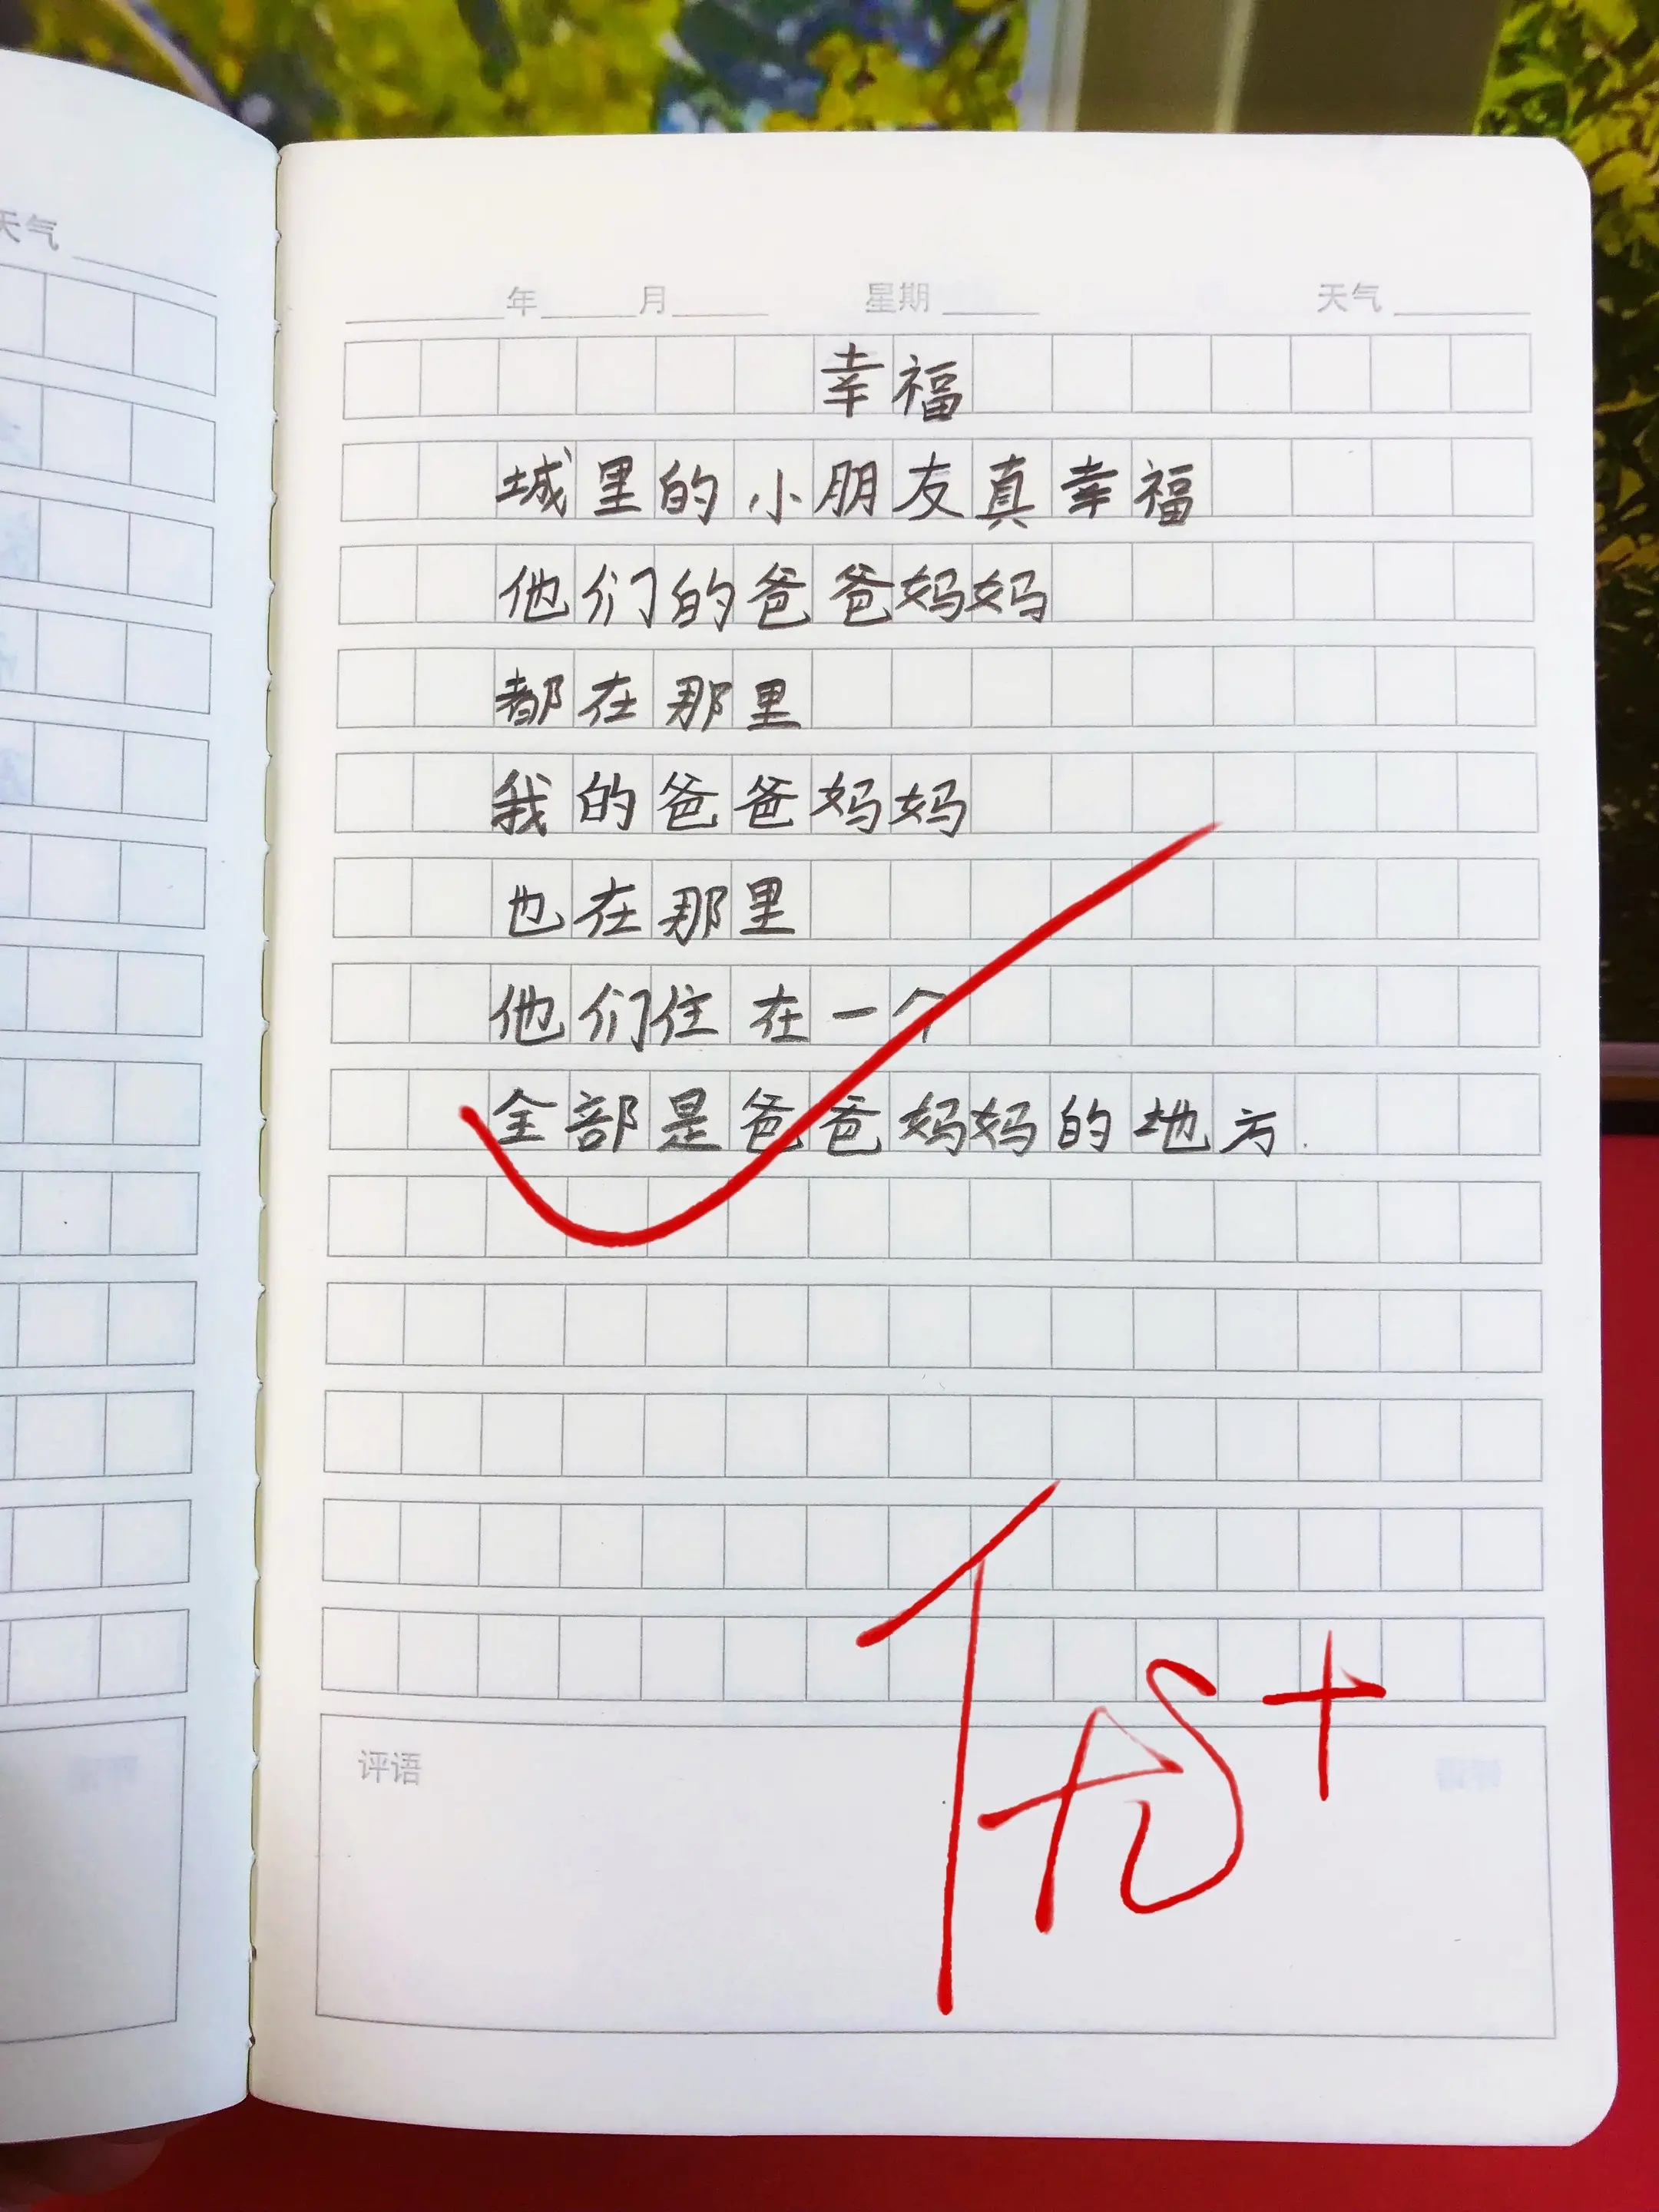 天气
年 月 星期 天气
幸福
城里的小朋友真幸福
他们的爸爸妈妈
都在那里
我的爸爸妈妈
也在那里
他们住在一个
全部是爸爸妈妈的地方.
评语